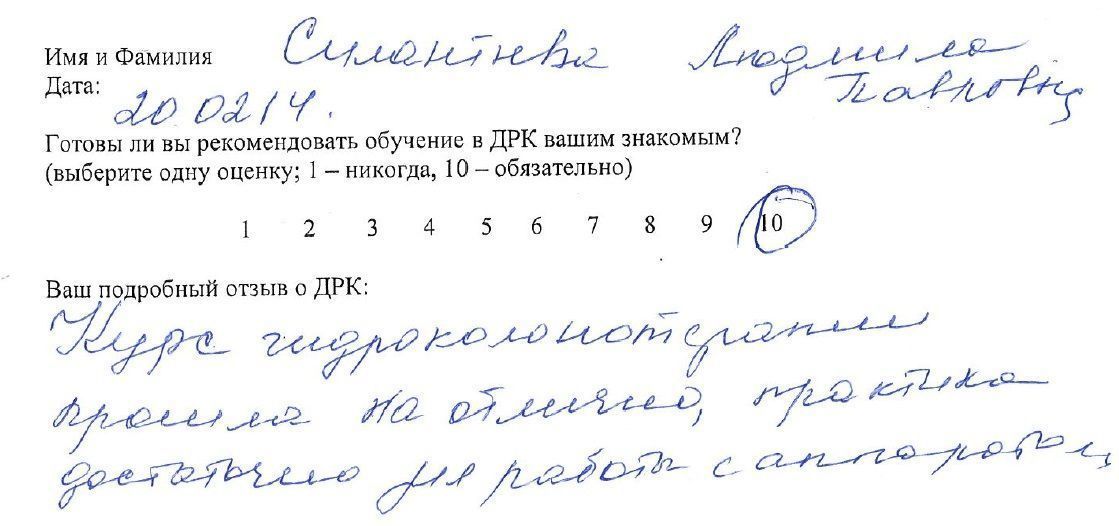 Имя и Фамилия Силантьева Людмила
Павловна
Дата:
20.02.14.
Готовы ли вы рекомендовать обучение в ДРК вашим знакомым?
(выберите одну оценку; 1 – никогда, 10 – обязательно)
1 2 3 4 5 6 7 8 9 10
Ваш подробный отзыв о ДРК:
Курс гидроколонотерапии
прошла на отлично, практика
достаточно для работы с аппаратом